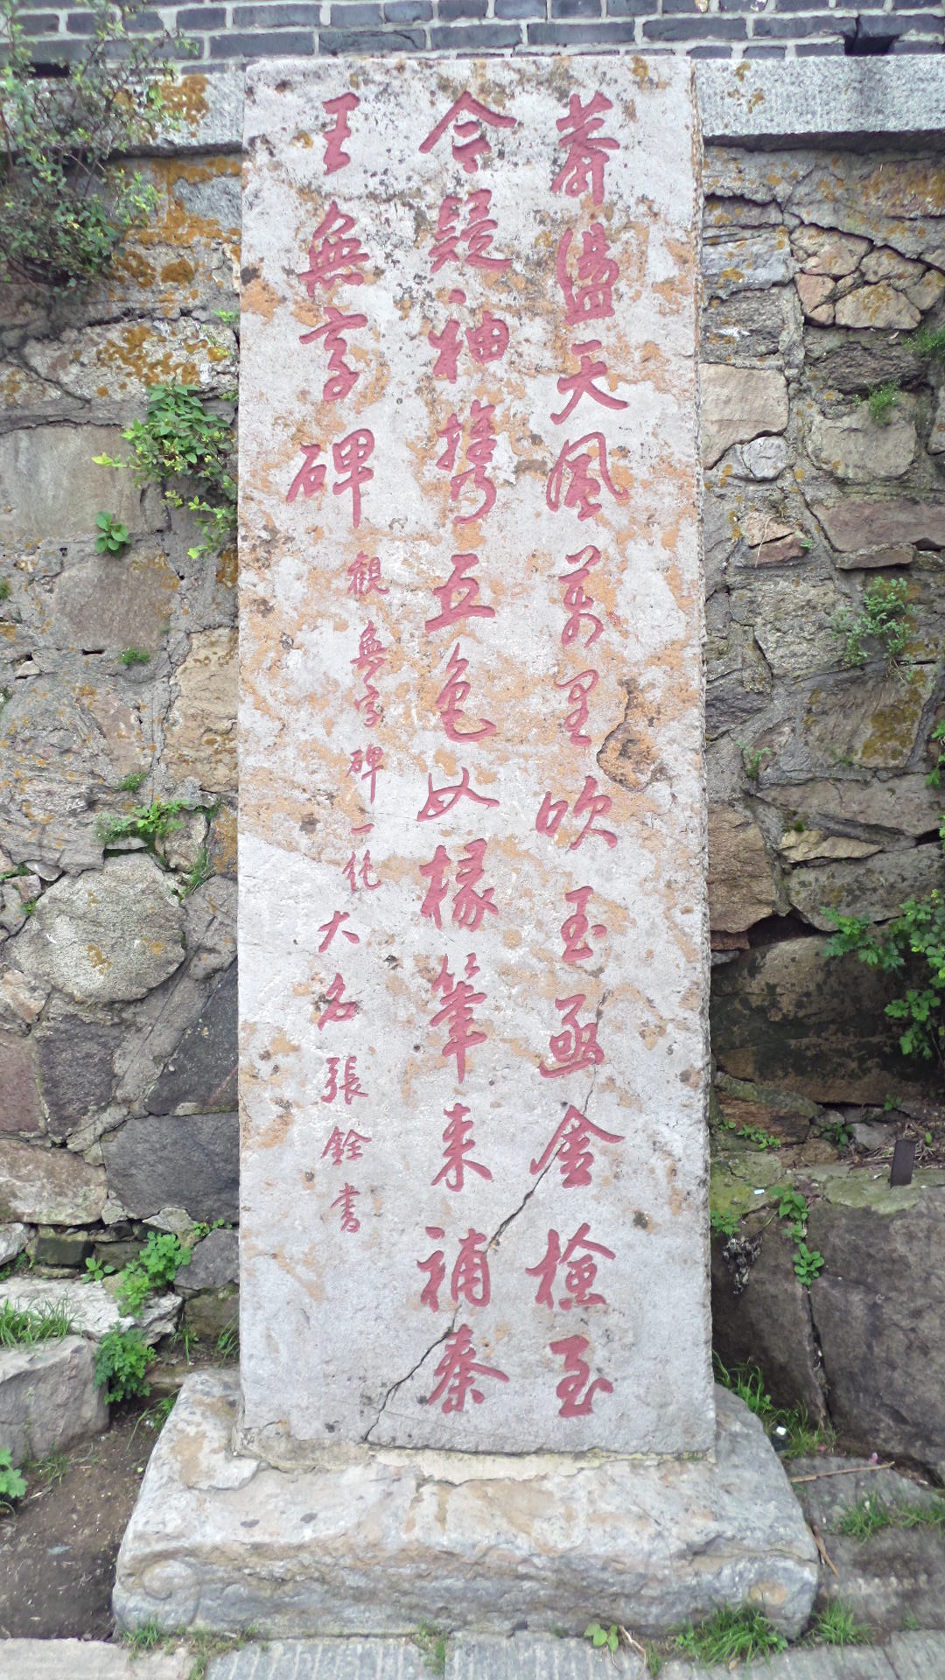 莽盪天風萬里吹玉函金檢至
今疑袖携五色如椽筆来補秦
王無字碑
觀無字碑一絕
大名張銓書